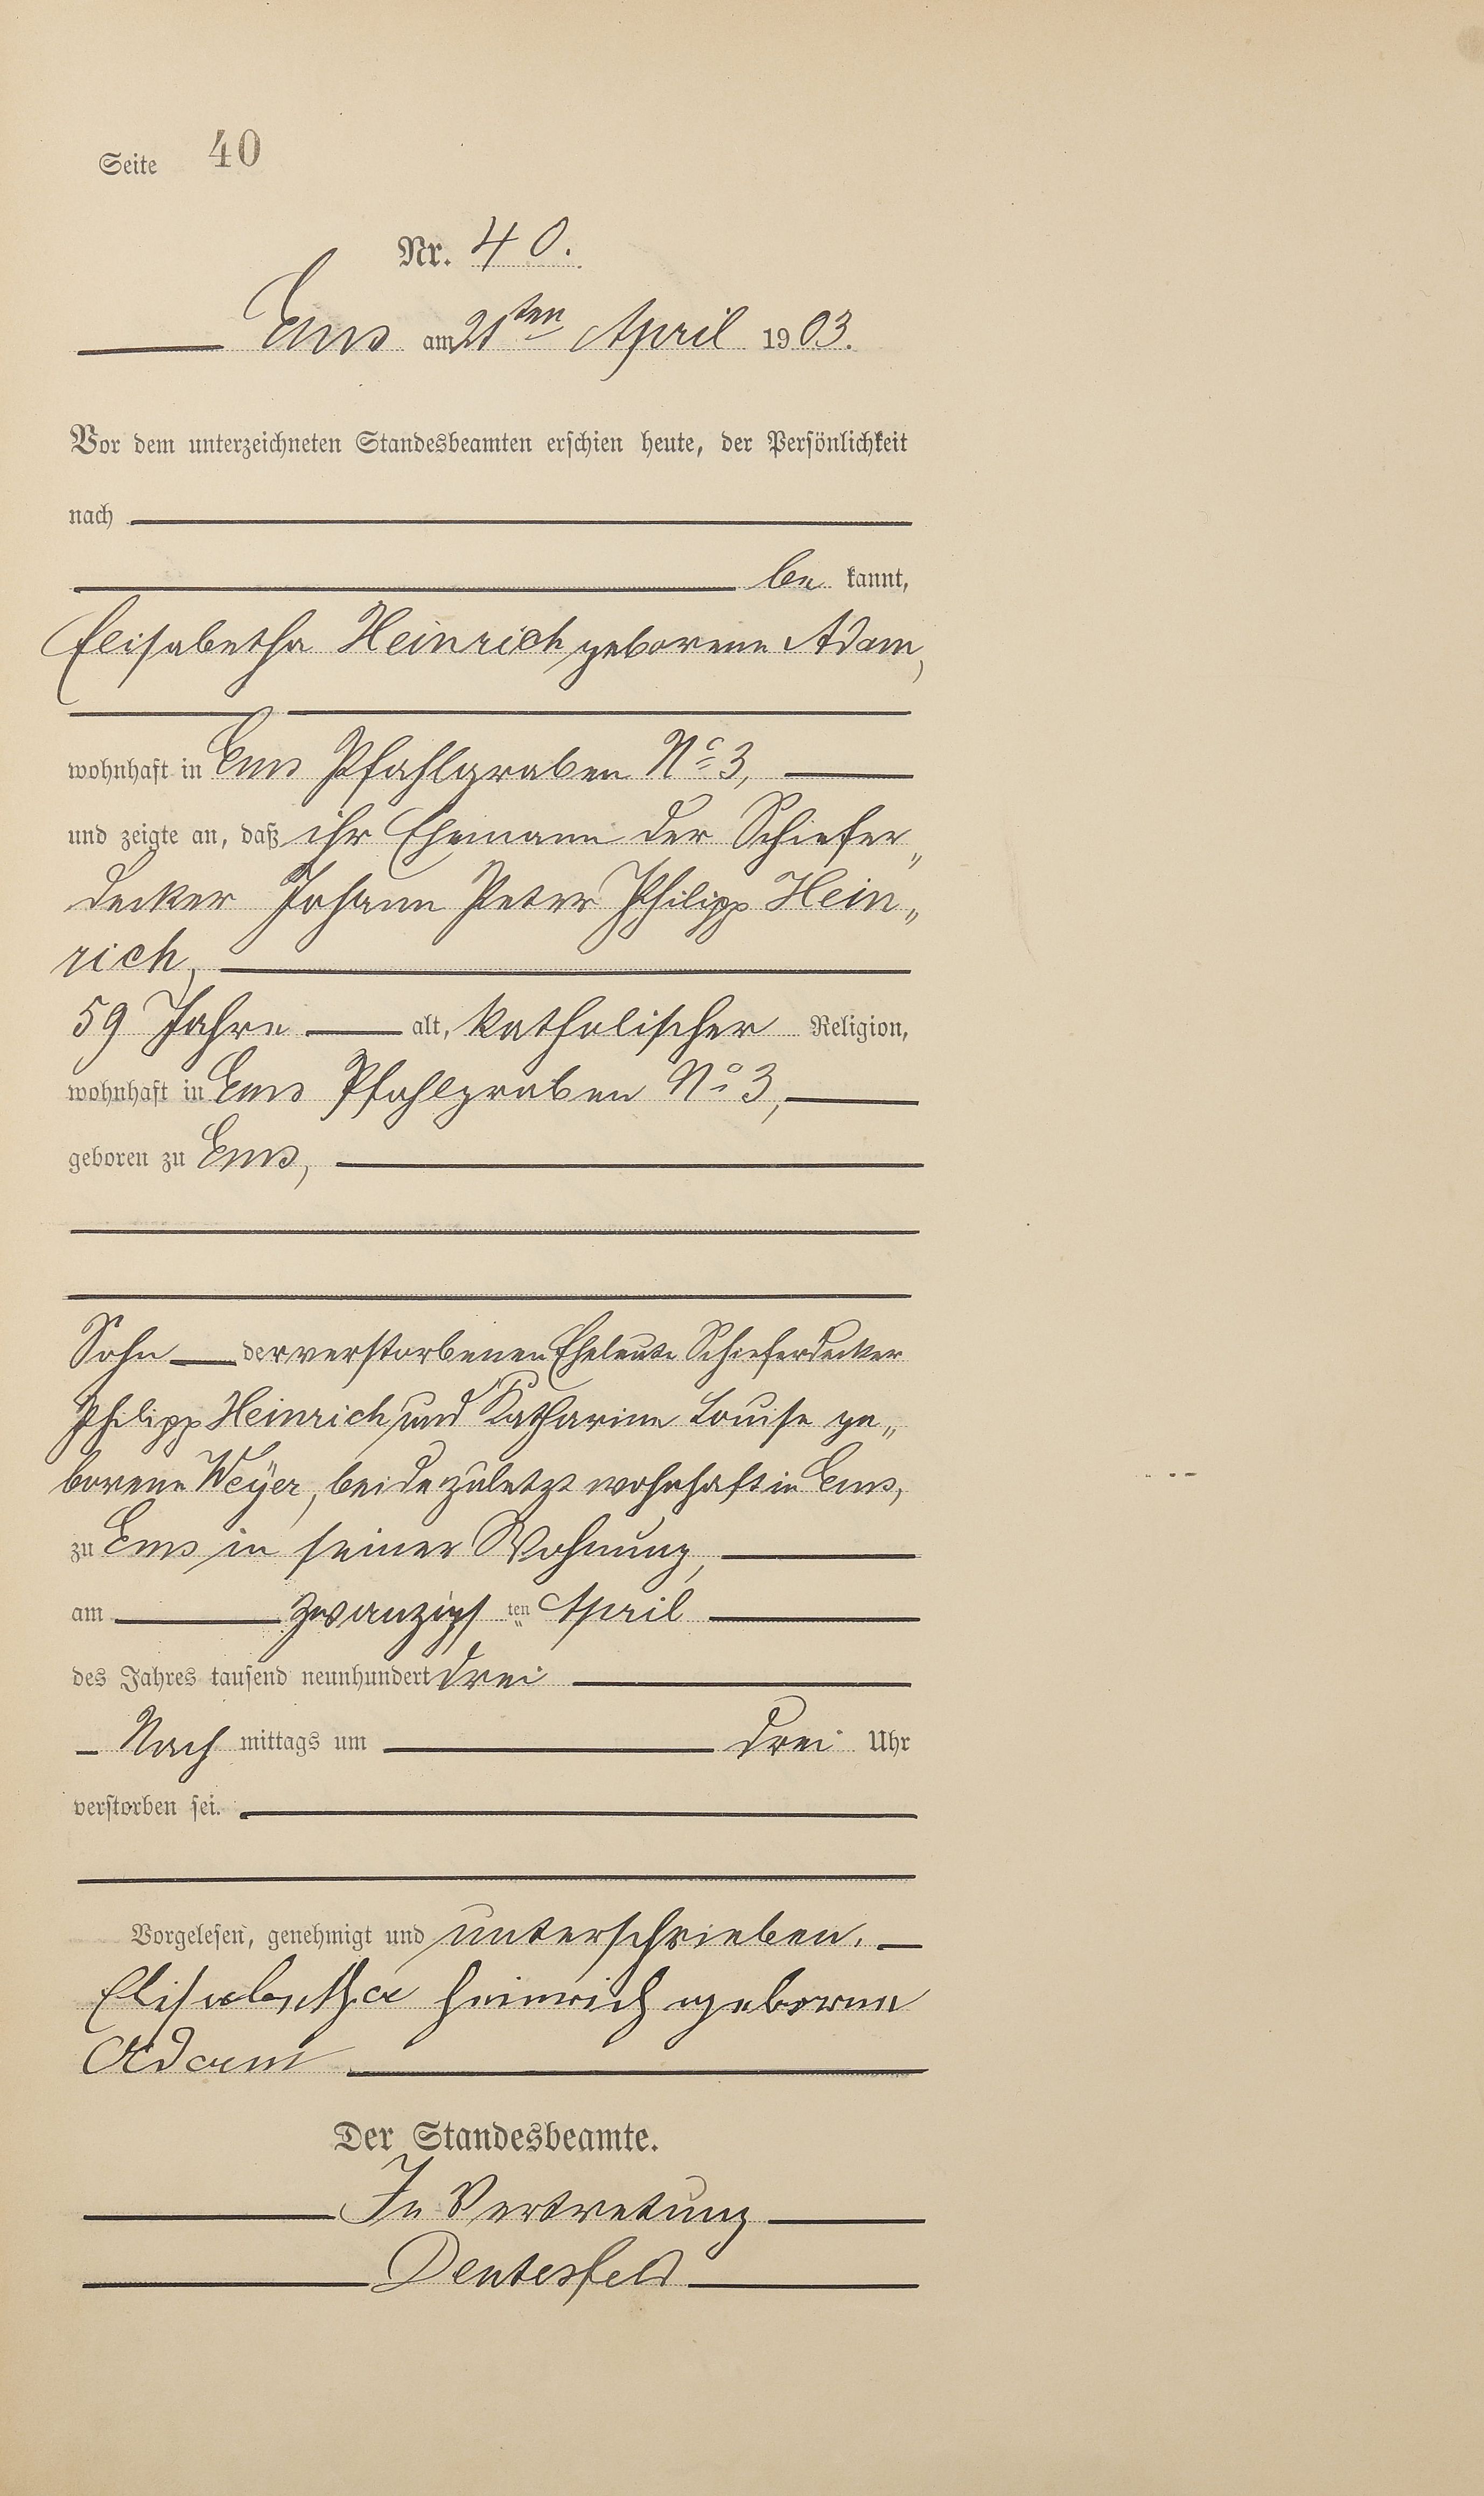 Seite 40
Nr. 40.
Ems am 21ten April 1903.
Vor dem unterzeichneten Standesbeamten erschien heute, der Persönlichkeit
nach
be kannt,
Elisabetha Heinrich geborene Adam,
wohnhaft in Ems Pfahlgraben No 3,
und zeigte an, daß ihr Ehemann der Schiefer„
decker Johann Peter Philipp Hein„
rich,
59 Jahre alt, katholischer Religion,
wohnhaft in Ems Pfahlgraben No 3,
geboren zu Ems,
Sohn der verstorbenen Eheleute Schieferdecker
Philipp Heinrich und Katharine Louise ge„
borene Weÿer, beide zuletzt wohnhaft in Ems,
zu Ems in seiner Wohnung,
am zwanzigsten April
des Jahres tausend neunhundert drei
Nach mittags um drei Uhr
verstorben sei.
Vorgelesen, genehmigt und unterschrieben.
Elisabetha Heinrich geborene
Adam
Der Standesbeamte.
In Vertretung
Dentesfeld